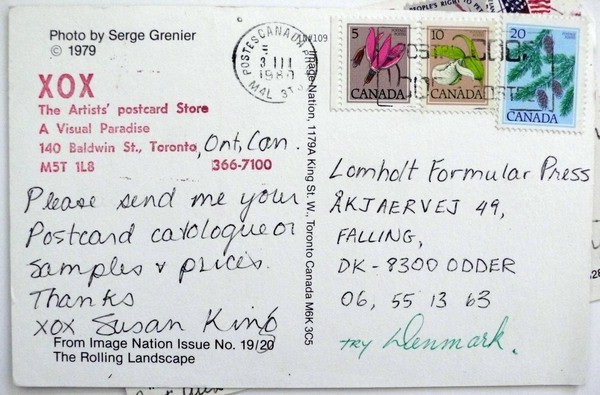 Photo by Serge Grenier
© 1979
XOX
The Artists' postcard Store
A Visual Paradise
140 Baldwin St., Toronto, Ont, Can.
M5T 1L8 366-7100
Please send me your
Postcard catologue or
samples & prices.
Thanks
xox Susan King
From Image Nation Issue No. 19/20
The Rolling Landscape
Image Nation, 1179A King St. W., Toronto Canada M6K 3C5
POSTES CANADA
3 III
1980
M4L 3T
5
CANADA
10
CANADA
20
CANADA
Lomholt Formular Press
ÅKJAERVEJ 49,
FALLING,
DK-8300 ODDER
06, 55 13 63
TRY Denmark.
PEOPLE'S RIGHT TO